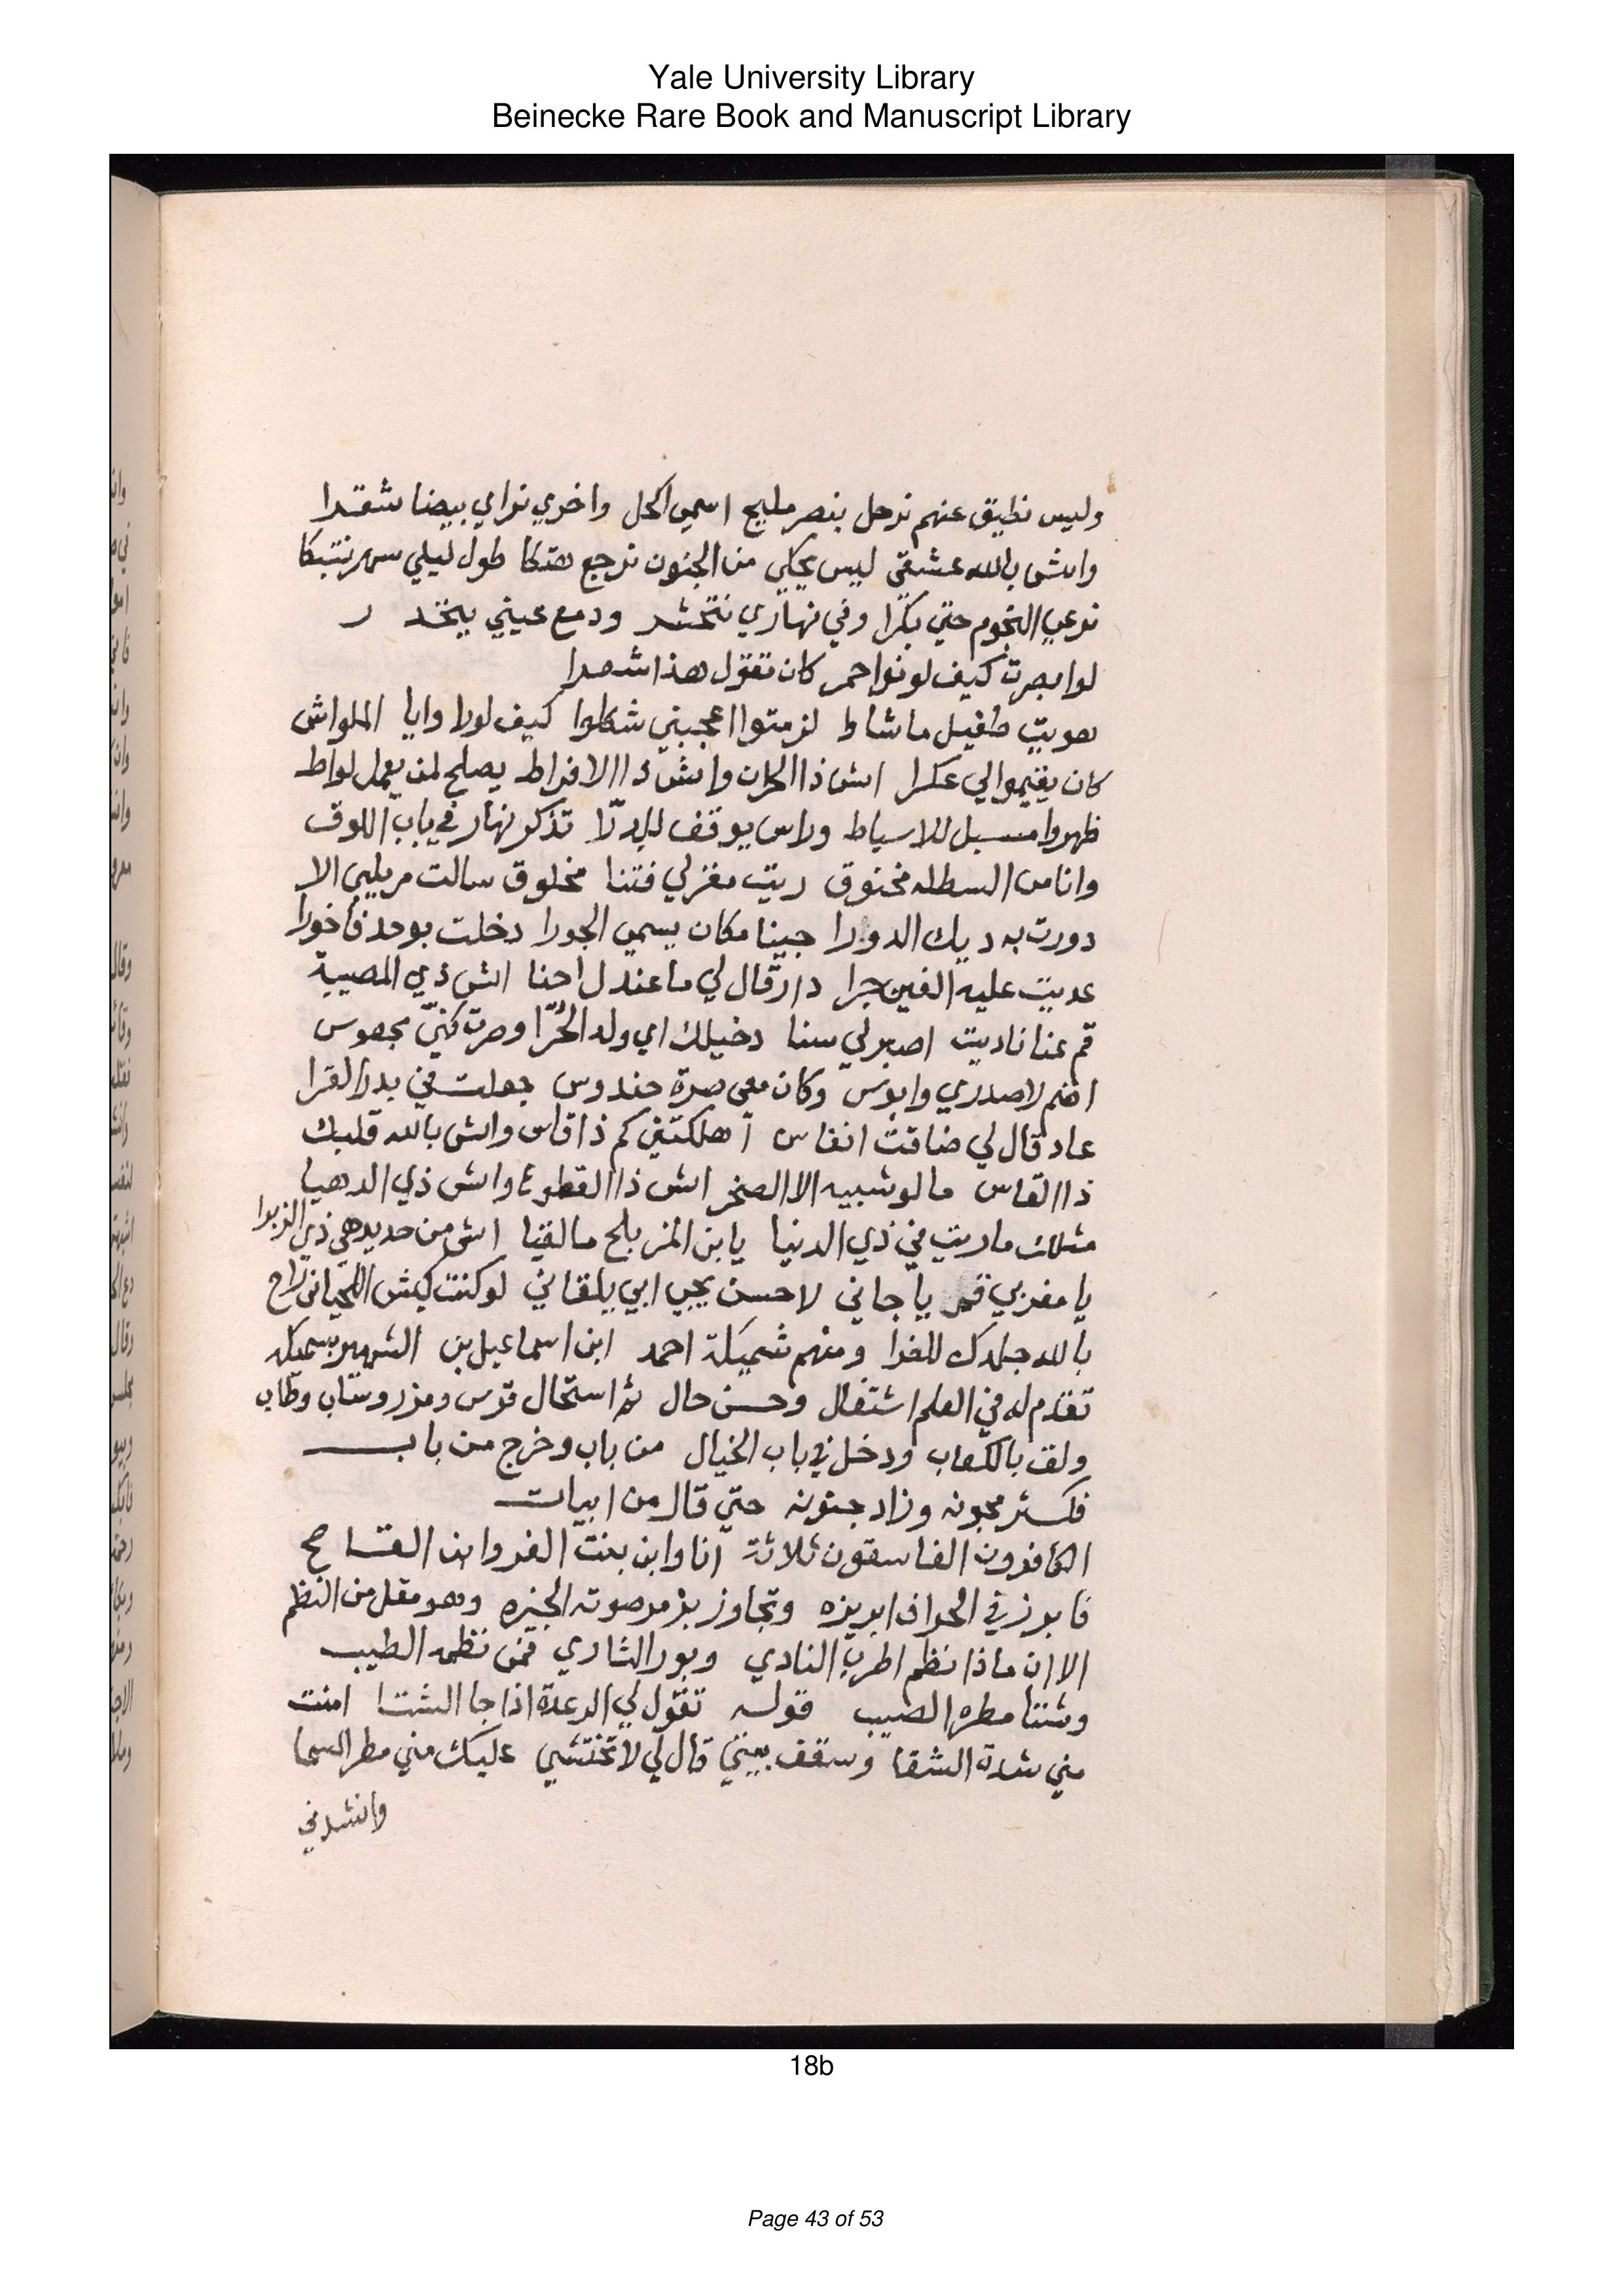 Yale University Library
Beinecke Rare Book and Manuscript Library
وليس نطيق عنهم نرحل بنصر مليح اسمي اكحل واخري نراي بيضا شقرا
وانش بالله عشقي ليس يحكي من الجنون نرجع هتكا طول ليلي سهر نتبكا
نرعي النجوم حتي بكرا وفي نهاري نتحشر ودمع عيني يتخد ر
لوا بصرت كيف لونوا حمر كان تقول هذا شهدا
هويت طفيل ماشاط لزمتوا اعجبني شكلوا كيف لورا وايا الملواش
كان يقيموا لي عكرا اش ذا الحران واش ذا الافراط يصلح لمن يعمل لواط
ظهروا مسبل للاسياط وراس يوقف للدرا تذكر نهار في باب اللوق
وانا من السطله مخنوق ريت مغزلي فتنا مخلوق سالت مريلي الا
دورت به ديك الدورا جينا مكان يسمي الجورا دخلت بوحد فاخورا
عديت عليه الفين جرا دار قال لي ما عندل احنا اش ذي المصيبة
قم عنا ناديت اصبر لي سنا دخيلك اي ولد الحرا وصرت كني مجهوس
اضم لا صدري وابوس وكان معي صرة حندوس جعلت في بدرا لقرا
عاد قال لي ضاقت انفاس اهلكتني كم ذا قاس واش بالله قلبك
ذا القاس مالو شبيه الا الصخر اش ذا القطوع واش ذي الدهيا
مثلك ماريت في ذي الدنيا يا بن المزبلح مالقيا اش من حديد هي ذي الزبرا
يا مغربي قم يا جاني لاحسن يجي ابي يلقاني لو كنت كبش اللحياني راح
بالله جلدك للفرا ومنهم شميكة احمد ابن اسماعيل بن الشهير بسميكه
تقدم له في العلم اشتغال وحسن حال ثم استحال قوس ومزر وستاب وطاب
ولقب بالكعاب ودخل في باب الخيال من باب وخرج من باب
فكثر مجونه وزاد جنونه حتي قال من ابيات
الكافرون الفاسقون ثلاثة انا وابن بنت الفر وابن القساح
فابرز في الحراف ابريزه وتجاوز بزمر صوته الجيزه وهو مقل من النظم
الا ان ماذا نظم اطرب النادي وبور الشاري فمن نظمه الطيب
وشتا مطره الصيب قوله تقول لي الرعدة اذا جا الشتا امنت
مني شدة الشقا وسقف بيتي قال لي لا تختشي عليك مني مطر السما
وانشدني
18b
Page 43 of 53